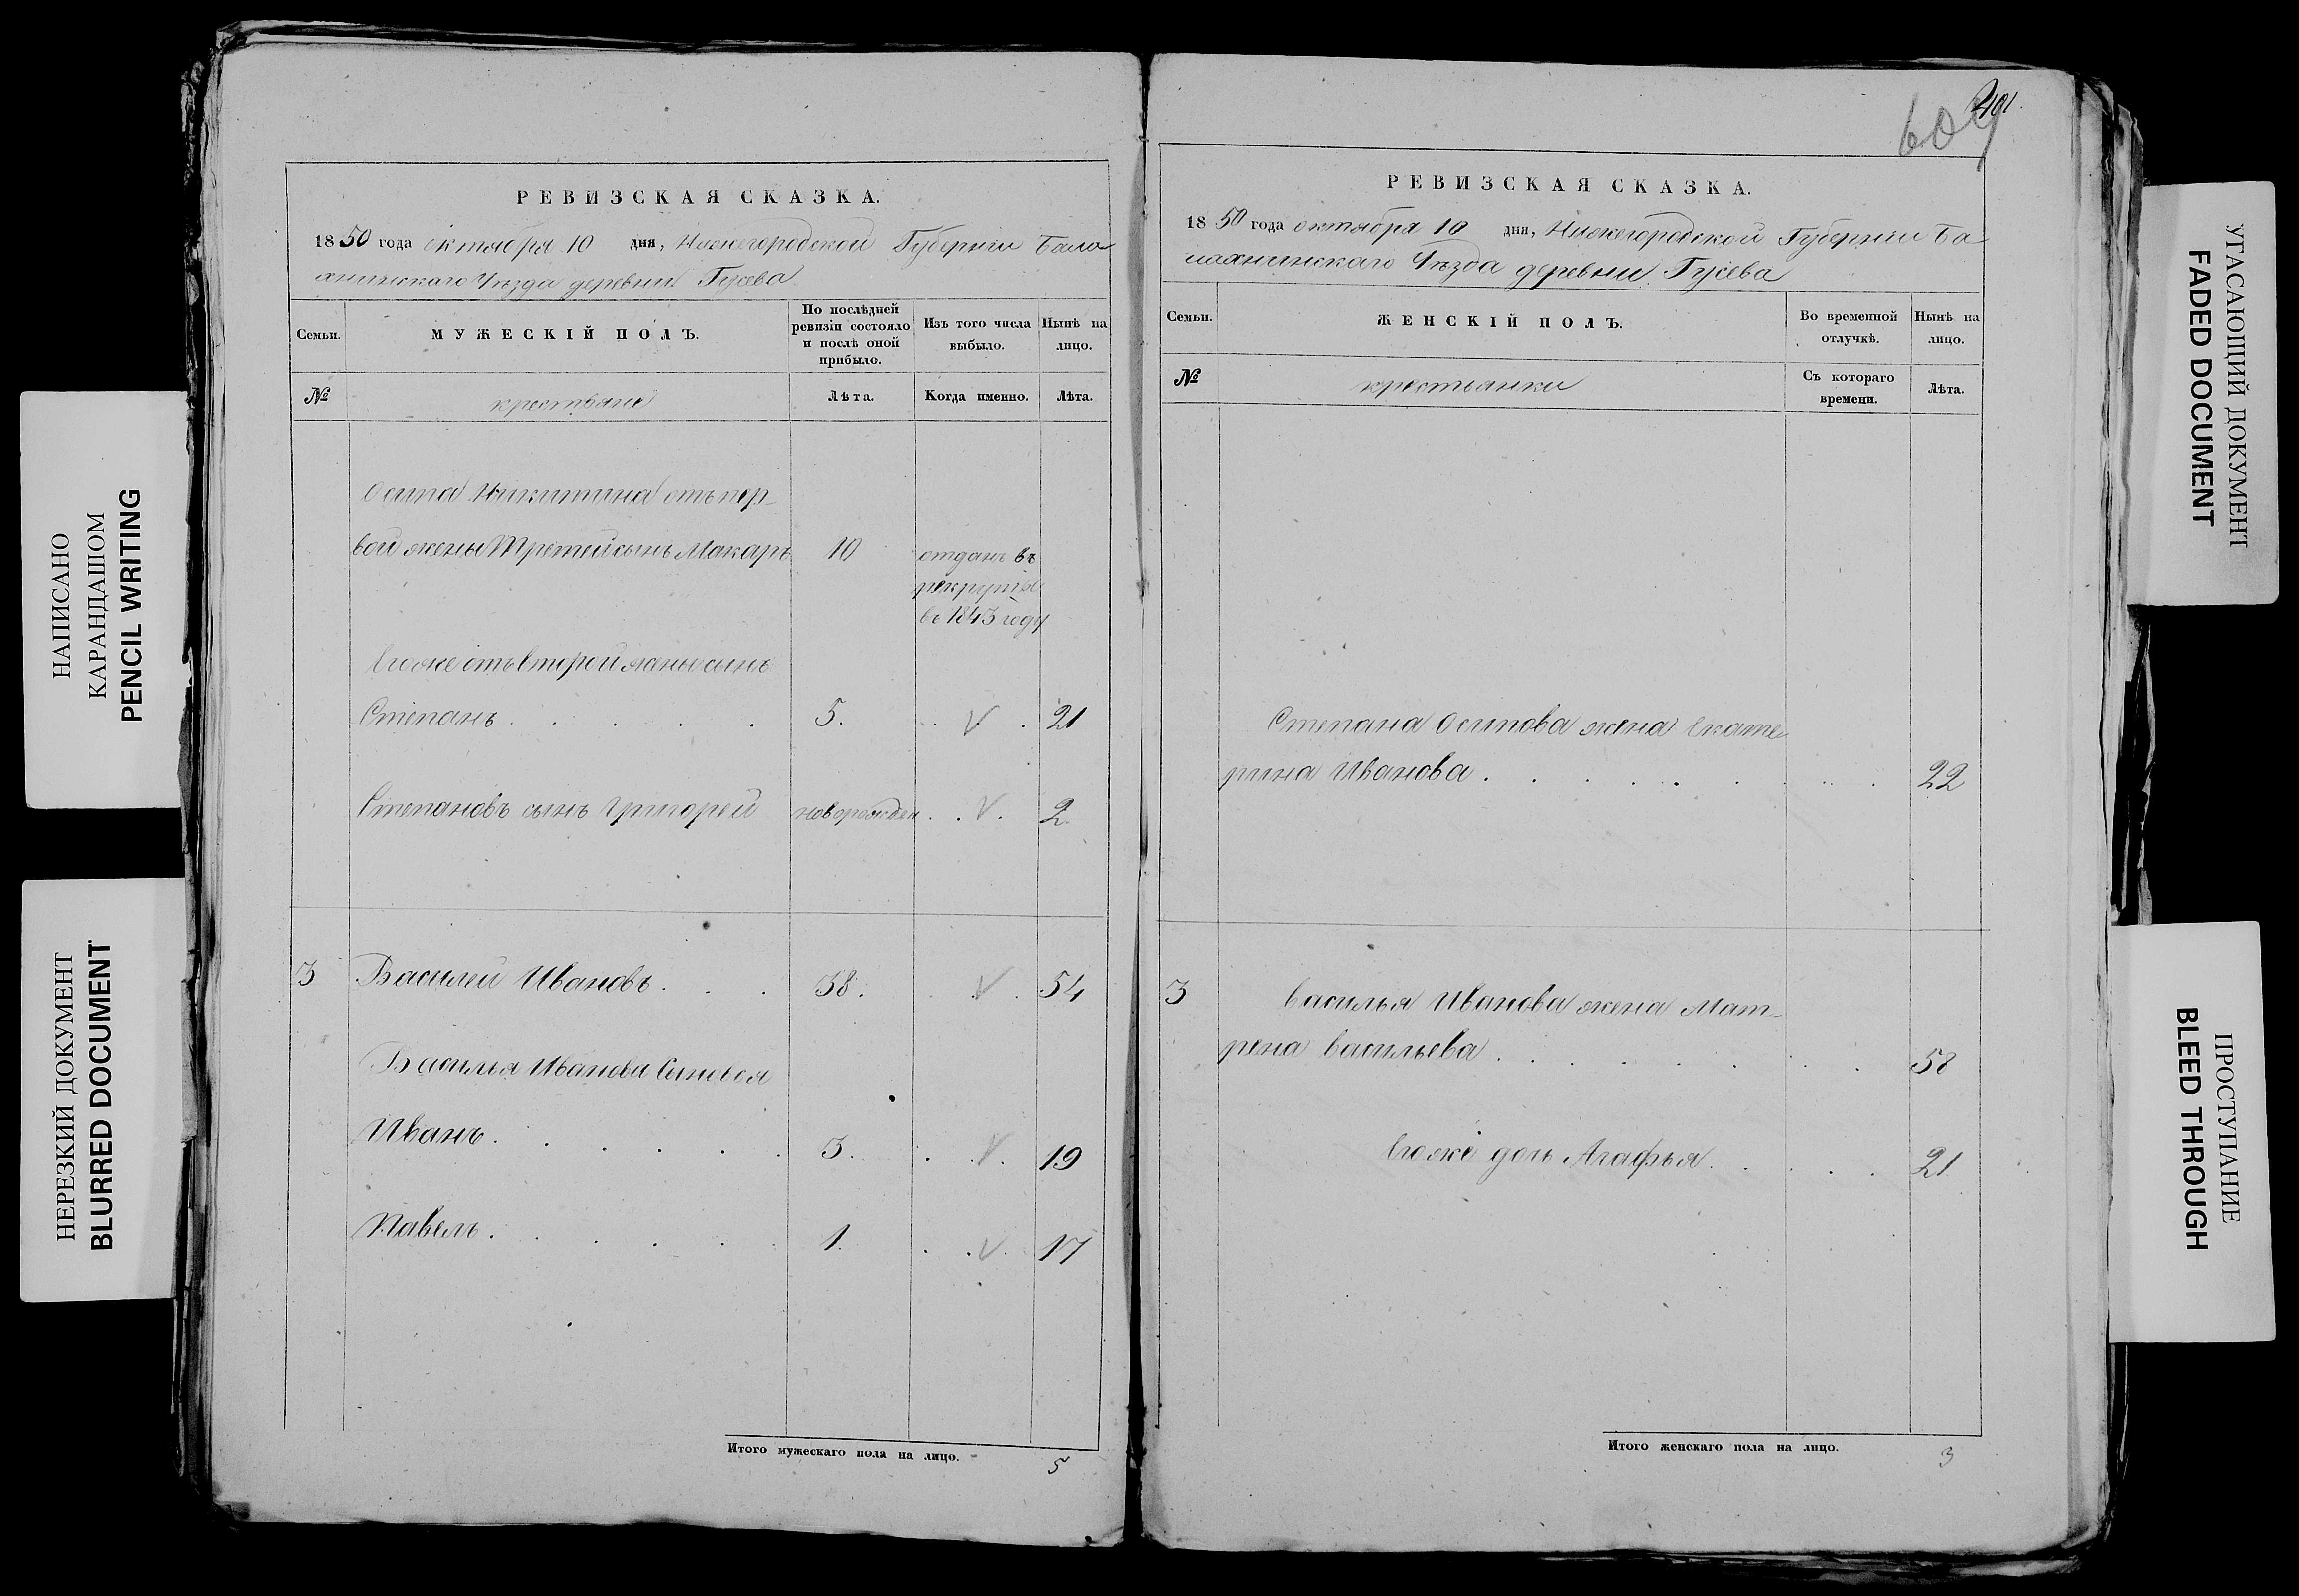 401.
609
РЕВИЗСКАЯ СКАЗКА.
1850 года октября 10 дня, Нижегородской Губерніи Бала
хнинскаго Уѣзда деревни Гусева
Семьи.
МУЖЕСКІЙ ПОЛЪ.
По послѣдней ревизіи состояло и послѣ оной прибыло.
Изъ того числа выбыло.
Нынѣ на лицо.
№
крестьяне
Лѣта.
Когда именно.
Лѣта.
Осипа Никитина отъ пер-
вой жены Третей сынъ Макаръ 10 отданъ въ
рекруты
въ 1843 году
Егоже отъ второй жены сынъ
Степанъ . . . . . 5. . . V . 21
Степановъ сынъ Григорей новорожден . . V . 2
3 Василей Ивановъ . . . 38 . . V . 54
Василья Иванова Сыновья
Иванъ . . . . . . 3. . . V . 19
Павелъ . . . . . . 1. . . V . 17
Итого мужескаго пола на лицо. 5
РЕВИЗСКАЯ СКАЗКА.
1850 года октября 10 дня, Нижегородской Губерніи Ба
лахнинскаго Уѣзда деревни Гусева
Семьи.
ЖЕНСКІЙ ПОЛЪ.
Во временной отлучкѣ.
Нынѣ на лицо.
№
крестьянки
Съ котораго времени.
Лѣта.
Степана Осипова жена Екате
рина Иванова . . . . . . . . 22
3 Василья Иванова жена Мат-
рена Васильева . . . . . . . 58
Егоже дочь Агафья . . . . . 21
Итого женскаго пола на лицо. 3
НАПИСАНО
КАРАНДАШОМ
PENCIL WRITING
НЕРЕЗКИЙ ДОКУМЕНТ
BLURRED DOCUMENT
УГАСАЮЩИЙ ДОКУМЕНТ
FADED DOCUMENT
ПРОСТУПАНИЕ
BLEED THROUGH